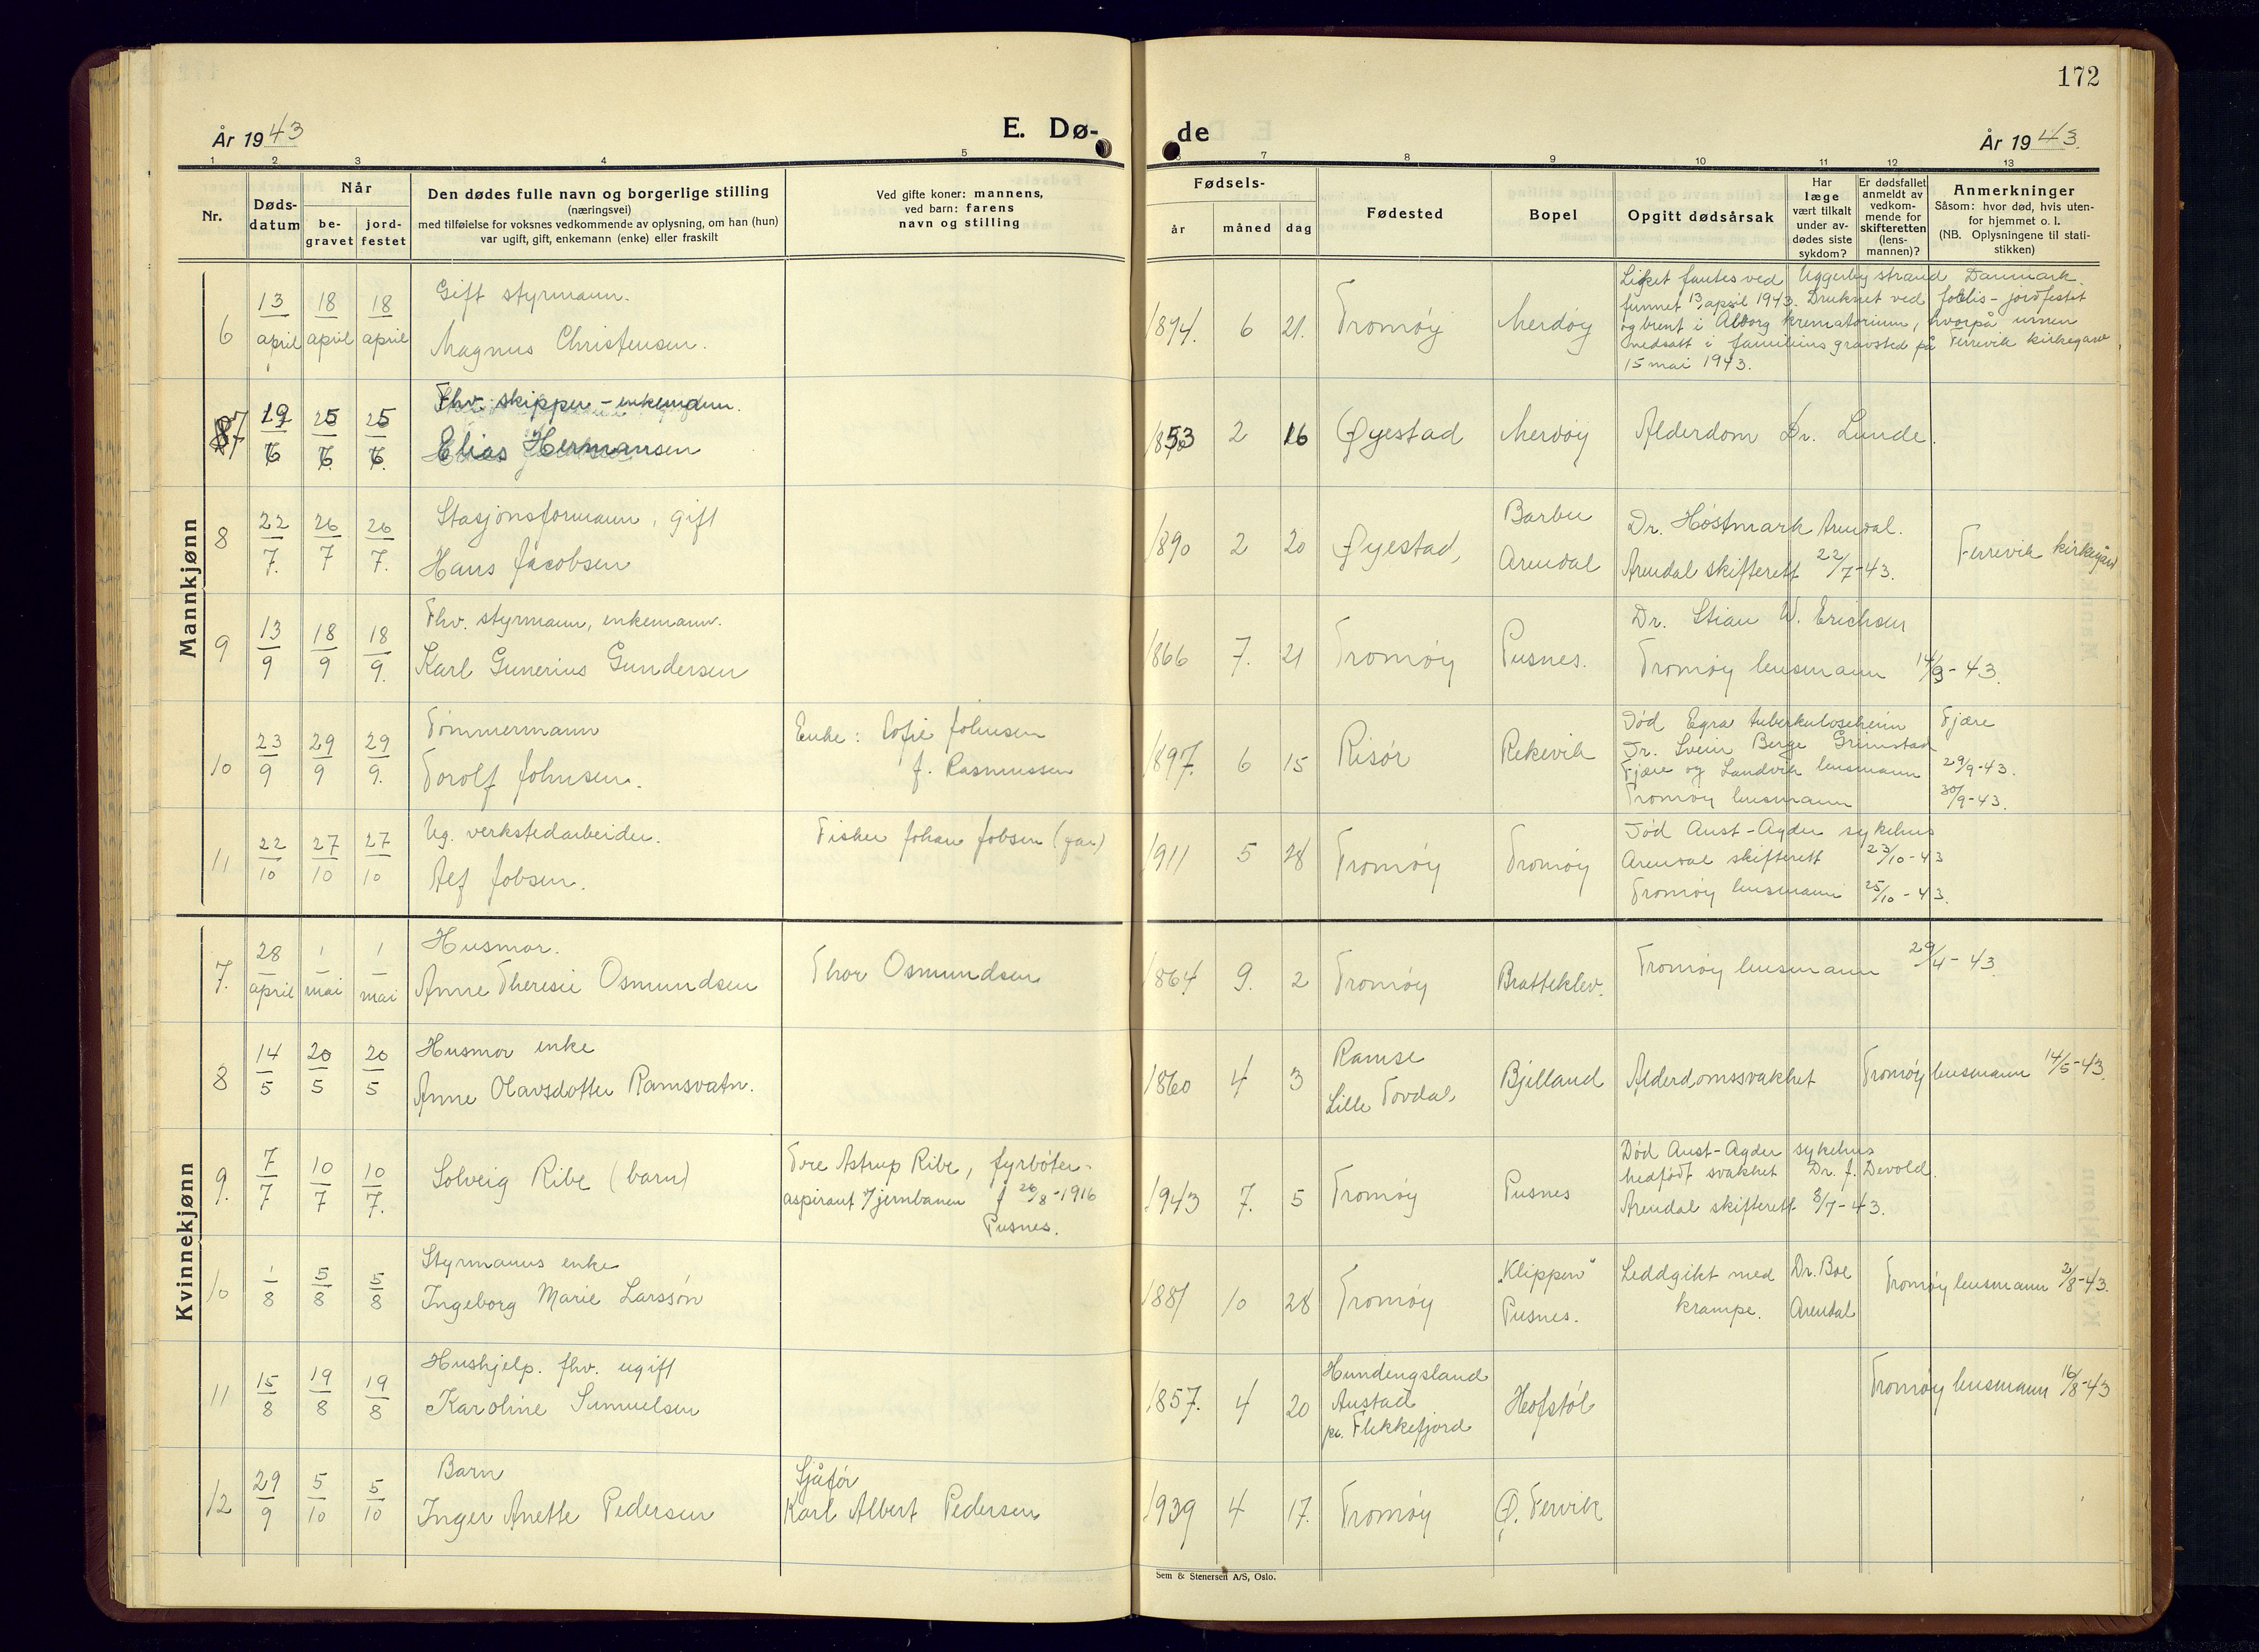 172
År 1943
E. Dø-
de
År 1943.
1 2 3 4 5 6 7 8 9 10 11 12 13
Nr.
Døds-
datum
Når
be-
gravet
jord-
festet
Den dødes fulle navn og borgerlige stilling
(næringsvei)
med tilføielse for voksnes vedkommende av oplysning, om han (hun)
var ugift, gift, enkemann (enke) eller fraskilt
Ved gifte koner: mannens,
ved barn: farens
navn og stilling
Fødsels-
år måned dag
Fødested
Bopel
Opgitt dødsårsak
Har
læge
vært tilkalt
under av-
dødes siste
sykdom?
Er dødsfallet
anmeldt av
vedkom-
mende for
skifteretten
(lens-
mannen)?
Anmerkninger
Såsom: hvor død, hvis uten-
for hjemmet o. l.
(NB. Oplysningene til stati-
stikken)
Mannkjønn
6
13 april
18 april
18 april
Gift styrmann.
Magnus Christensen.
1894. 6 21.
Tromøy
Merdøy
Liket fantes ved Uggerby strand Danmark.
funnet 13 april 1943. Druknet ved forlis - jordfestet
og brent i Ålborg krematorium, hvorpå urnen
nedsatt i familiens gravsted på Færvik kirkegård
15 mai 1943.
7
19/6
25/6.
25/6.
Fhv. skipper - enkemann.
Elias Hermansen
1853 2 16
Øyestad
Merdøy
Alderdom
Dr. Lunde.
8
22/7.
26/7
26/7.
Stasjonsformann, gift
Hans Jacobsen
1890 2 20
Øyestad,
Barbu
Arendal
Dr. Høstmark Arendal.
Arendal skifterett 22/7-43.
Færevik kirkegård
9
13/9
18/9
18/9.
Fhv. styrmann, enkemann.
Karl Gunerius Gundersen
1866 7. 21
Tromøy
Pusnes.
Dr. Stian W. Erichsen
Tromøy lensmann 14/9-43.
10
23/9
29/9
29/9.
Tømmermann
Torolf Johnsen.
Enke: Sofie Johnsen
f. Rasmussen
1897. 6 15
Risør
Rekevik
Død Egra tuberkuloseheim Fjære
Dr. Svein Berge Grimstad
Fjære og Landvik lensmann 29/9-43.
Tromøy lensmann 30/9-43.
11
22/10
27/10
27/10
Ug. verkstedarbeider.
Alf Jobsen.
Fisker Johan Jobsen (far)
1911 5 28
Tromøy
Tromøy
Død Aust-Agder sykehus
Arendal skifterett 23/10-43
Tromøy lensmann 25/10-43.
Kvinnekjønn
7.
28 april
1 mai
1 mai
Husmor.
Anne Theresie Osmundsen
Thor Osmundsen
1864 9. 2
Tromøy
Bratteklev.
Tromøy lensmann 29/4-43.
8
14/5
20/5
20/5
Husmor enke
Anne Olavsdotter Ramsvatn.
1860 4 3
Ramse
Lille Tovdal,
Bjelland
Alderdomssvakhet
Tromøy lensmann 14/5-43.
9.
7/7
10/7
10/7.
Solveig Ribe (barn)
Tore Astrup Ribe, fyrbøter-
aspirant v/jernbanen f 26/8-1916
Pusnes.
1943 7. 5
Tromøy
Pusnes
Død Aust-Agder sykehus
medfødt svakhet Dr. J. Devold.
Arendal skifterett 8/7-43.
10
1/8
5/8
5/8
Styrmanns enke
Ingeborg Marie Larssøn
1881 10 28
Tromøy
"Klippen"
Pusnes.
Leddgikt med
krampe.
Dr. Boe
Arendal
Tromøy lensmann 2/8-43.
11
15/8
19/8
19/8
Hushjelp. fhv. ugift
Karoline Samuelsen
1857. 4 20
Hundingsland
Austad
pr. Flekkefjord
Hofstøl
Tromøy lensmann 16/8-43
12
29/9
5/10
5/10
Barn
Inger Anette Pedersen
Sjåfør
Karl Albert Pedersen
1939 4 17.
Tromøy
Ø. Fervik
Sem & Stenersen A/S, Oslo.